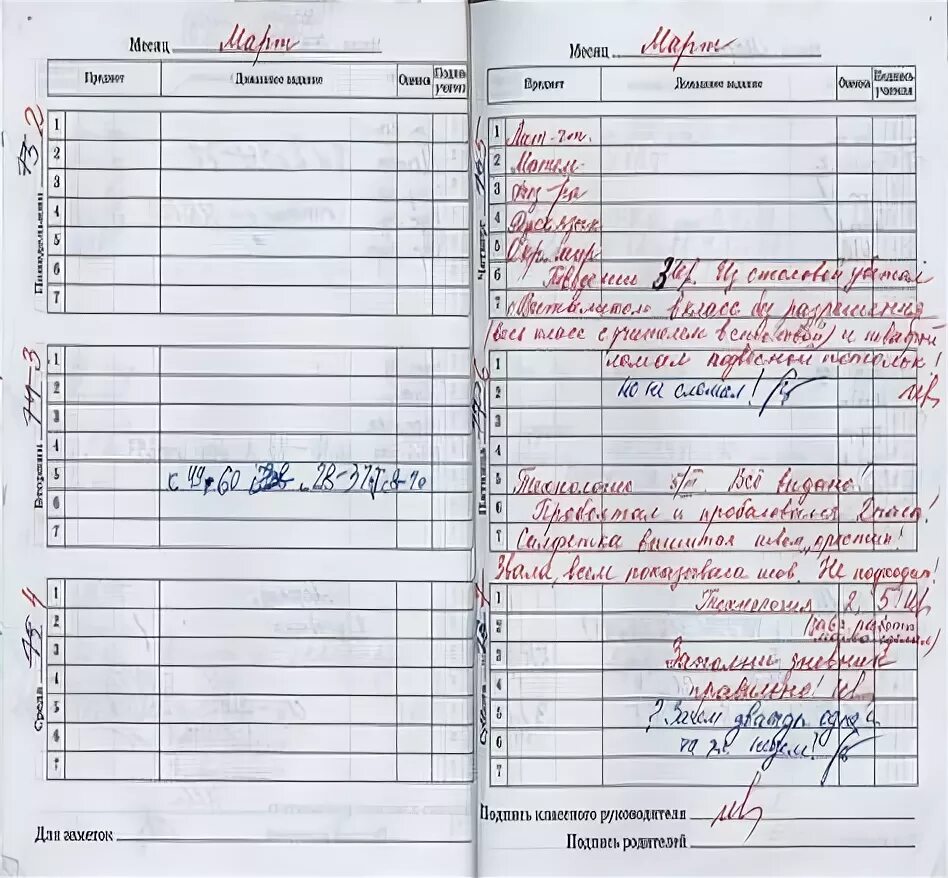 Месяц Март
Предмет Домашнее задание Оценка
Понедельник 13 2
1
2
3
4
5
6
7
Вторник 14 3
1
2
3
4
5 с 49-60 28-37
6
7
Среда 4
1
2
3
4
5
6
7
Для заметок
Месяц Март
Предмет Домашнее задание Оценка Подпись учителя
Четверг 16 5
1 Лит-чт.
2 Матем
3 Физ-ра
4 Русс язык
5 Окр. мир
6 Поведение 3 Из столовой убежал
7 в класс без разрешения
(весь класс с учителем в столовой) и шваброй
ломал подвесной потолок!
Пятница 17 6
1
2 Но не сломал!
3
4
5 Технологию Всё видано!
6 Проболтал и пробаловался 2 часа!
7 Салфетка вышитая швом "крестик"!
Звала, всем показывала шов. Не подходил!
Суббота 18 7
1 Технология 2, 5!
2
3 Заполни дневник
4 правильно!
5 ? Зачем дважды одна
6 та же неделя!
7
Подпись классного руководителя
Подпись родителей